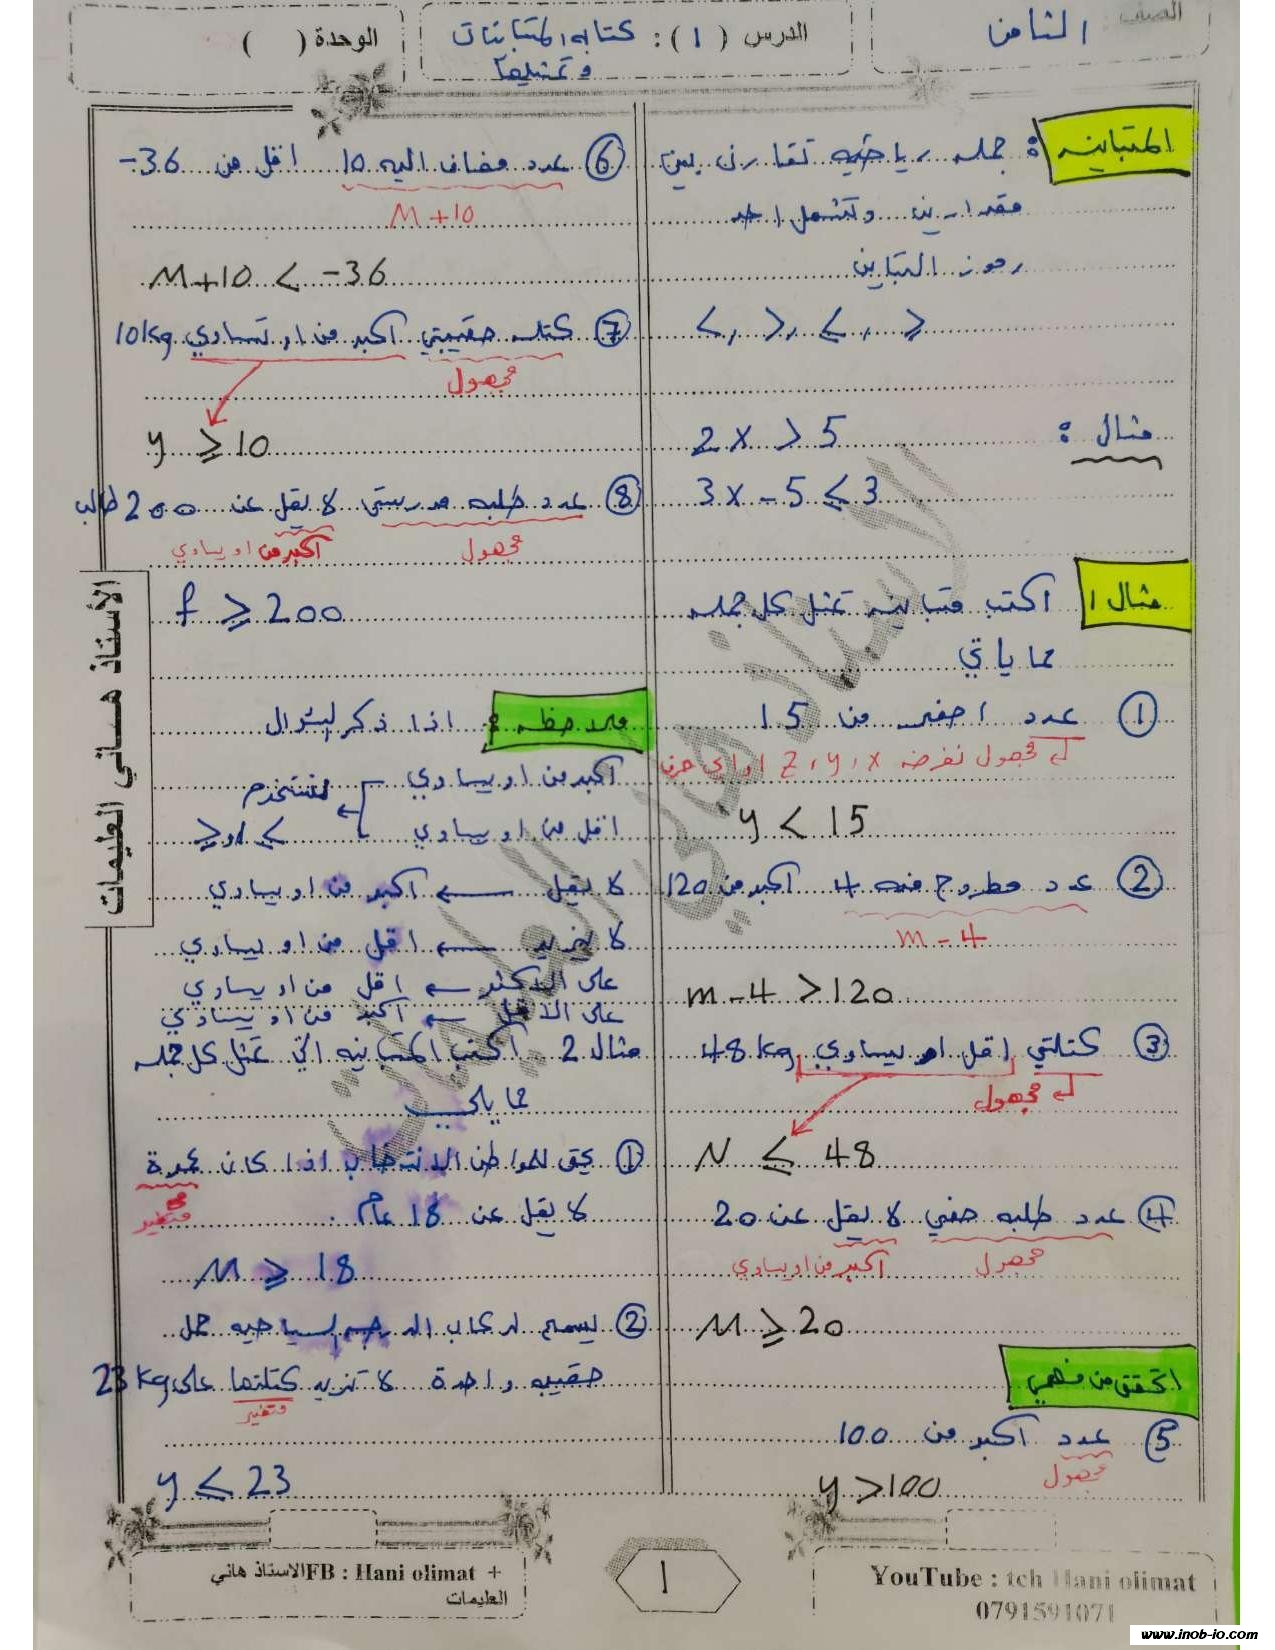 الصف: الثامن
الدرس ( 1 ) : كتابه المتباينات وتمثيلها
الوحدة ( )
المتباينه : جمله رياضيه تقارن بين
مقدارين وتشمل احد
رموز التباين
<, >, ≤, ≥
مثال : 2x > 5
3x - 5 ≤ 3
مثال 1 اكتب متباينه تمثل كل جمله
مما ياتي
① عدد اصغر من 15
مجهول نفرضه x, y, z او اي حرف
y < 15
② عدد مطروح منه 4 اكبر من 120
m - 4
m - 4 > 120
③ كتلتي اقل او يساوي 48 kg
مجهول
N ≤ 48
④ عدد طلبه صفي لا يقل عن 20
مجهول اكبر من او يساوي
M ≥ 20
اتحقق من فهمي
⑤ عدد اكبر من 100
مجهول
y > 100
⑥ عدد مضاف اليه 10 اقل من -36
M + 10
M + 10 < -36
⑦ كتله حقيبتي اكبر من او تساوي 10kg
مجهول
y ≥ 10
⑧ عدد طلبه مدرستي لا يقل عن 200 طالب
مجهول اكبر من او يساوي
f ≥ 200
ملاحظه : اذا ذكر السؤال
اكبر من او يساوي
نستخدم
اقل من او يساوي
≤ او ≥
لا يقل ← اكبر من او يساوي
لا يزيد ← اقل من او يساوي
على الاكثر ← اقل من او يساوي
على الاقل ← اكبر من او يساوي
مثال 2 اكتب المتباينه التي تمثل كل جمله
مما يلي
① يحق للمواطن الانتخاب اذا كان عمرة
متغير
لا يقل عن 18 عام .
M ≥ 18
② يسمح لركاب السياحيه حمل
حقيبه واحدة لا تزيد كتلتها على 23kg
متغير
y ≤ 23
الأستاذ هاني العليمات
الأستاذ هاني العليمات
YouTube : tch Hani olimat
0791591071
1
FB : Hani olimat + الاستاذ هاني
العليمات
www.inob-jo.com